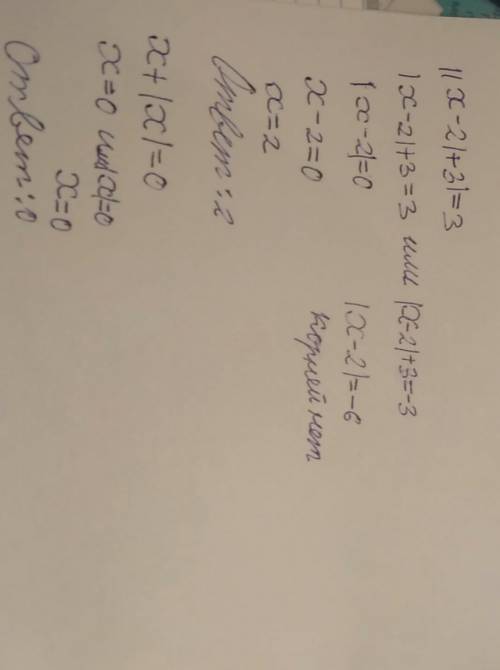 ||x-2|+3|=3
|x-2|+3=3 или |x-2|+3=-3
|x-2|=0 |x-2|=-6
x-2=0 корней нет
x=2
Ответ: 2
x+|x|=0
x=0 или |x|=0
x=0
Ответ: 0